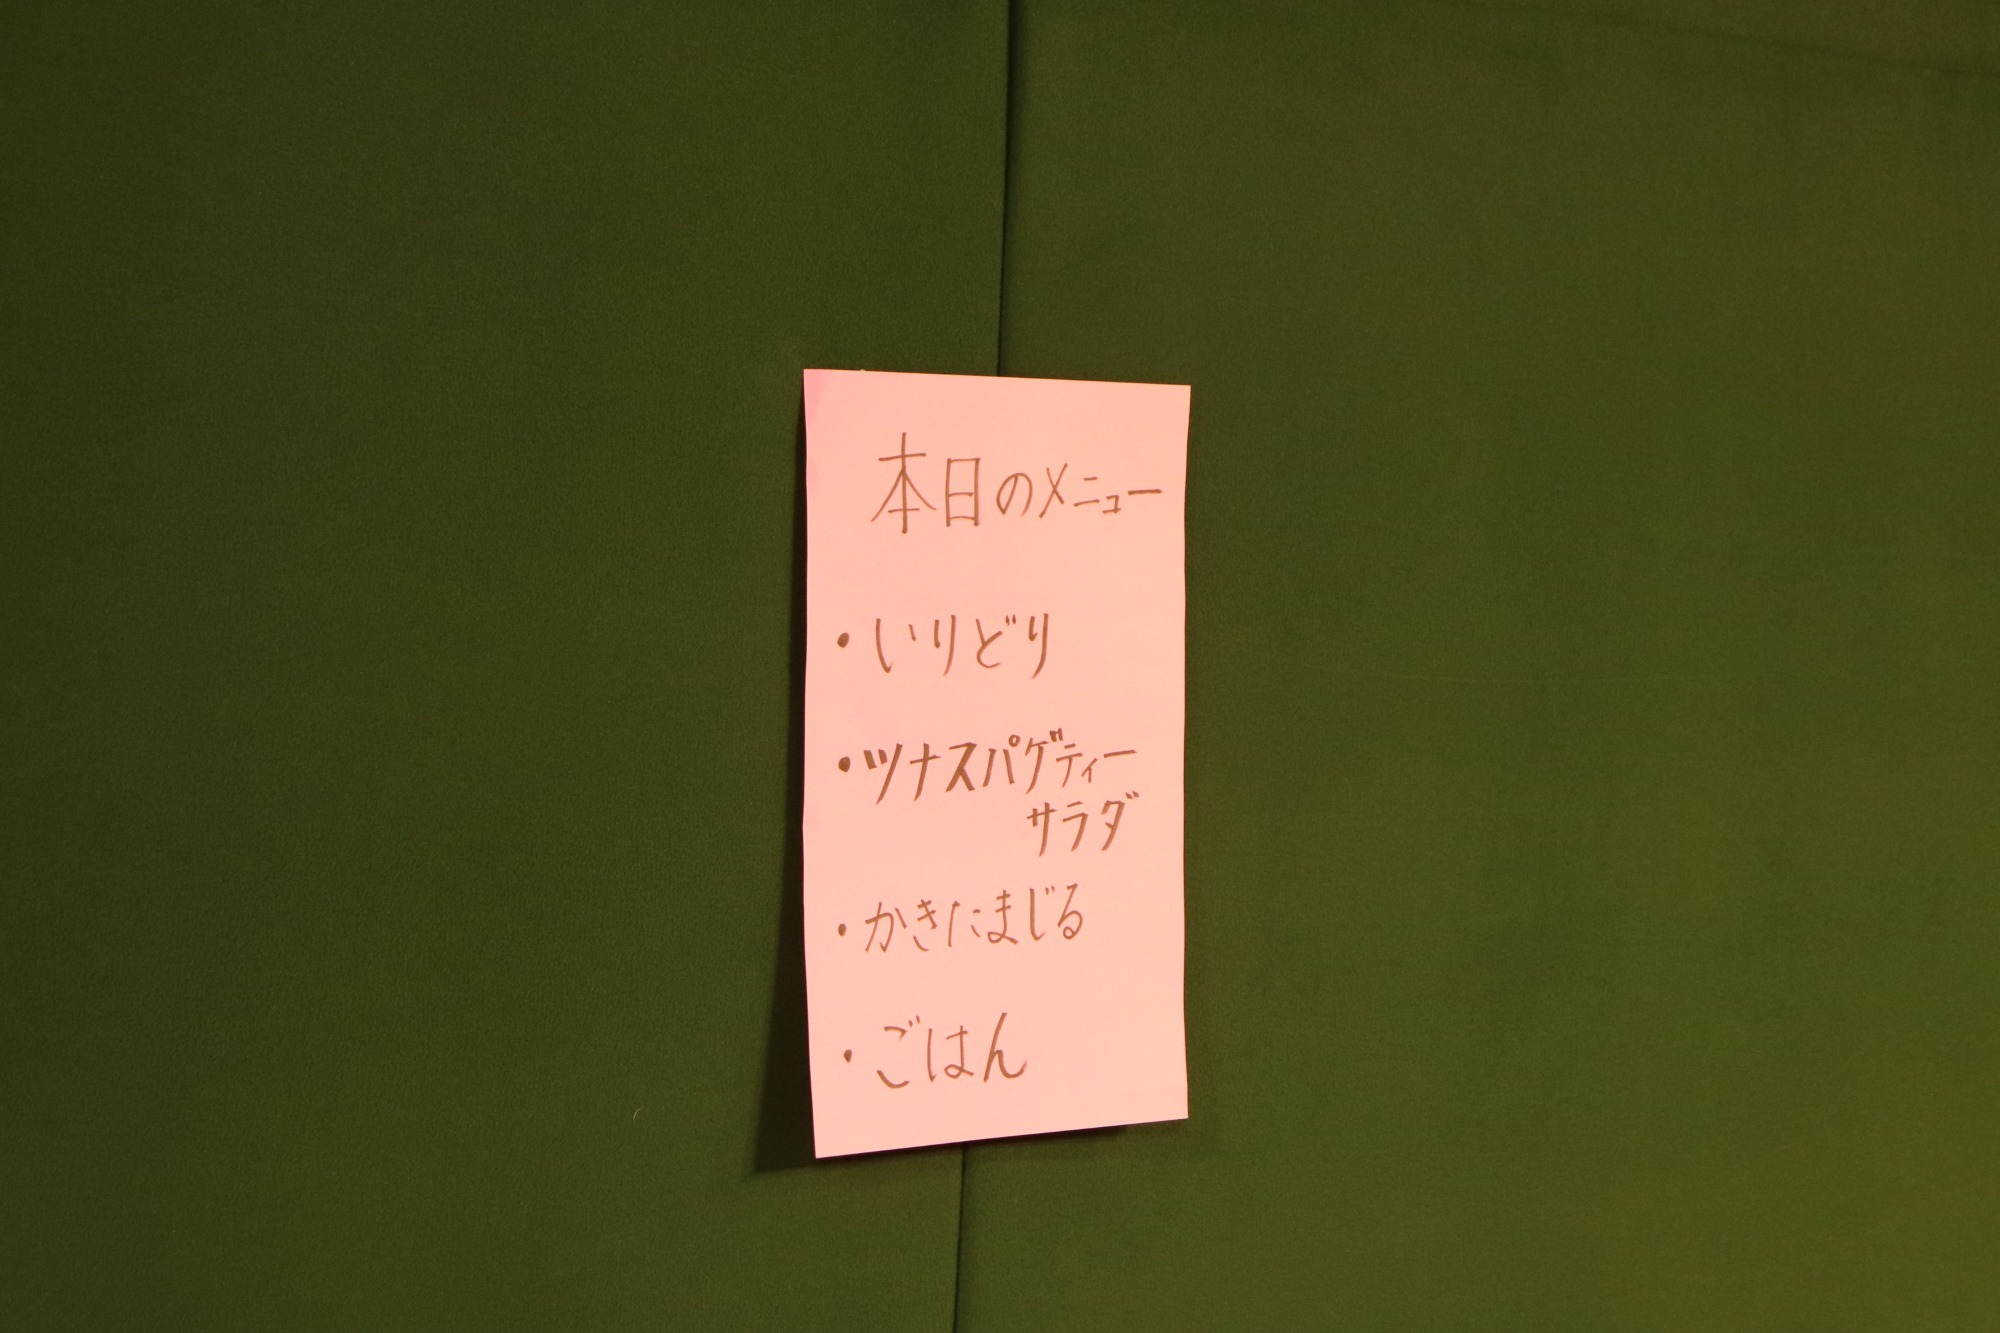 本日のメニュー
・いりどり
・ツナスパゲティー
サラダ
・かきたまじる
・ごはん